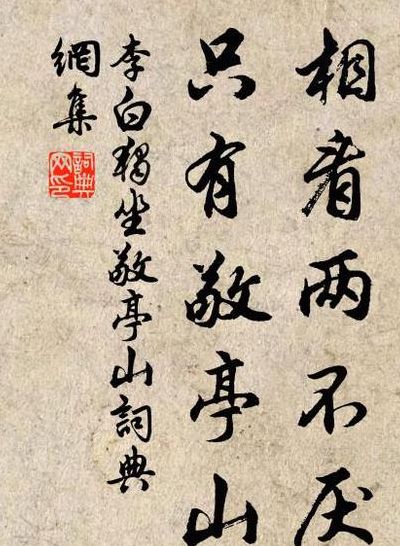 相看两不厌
只有敬亭山
李白独坐敬亭山詞典
網集
詞典
网印